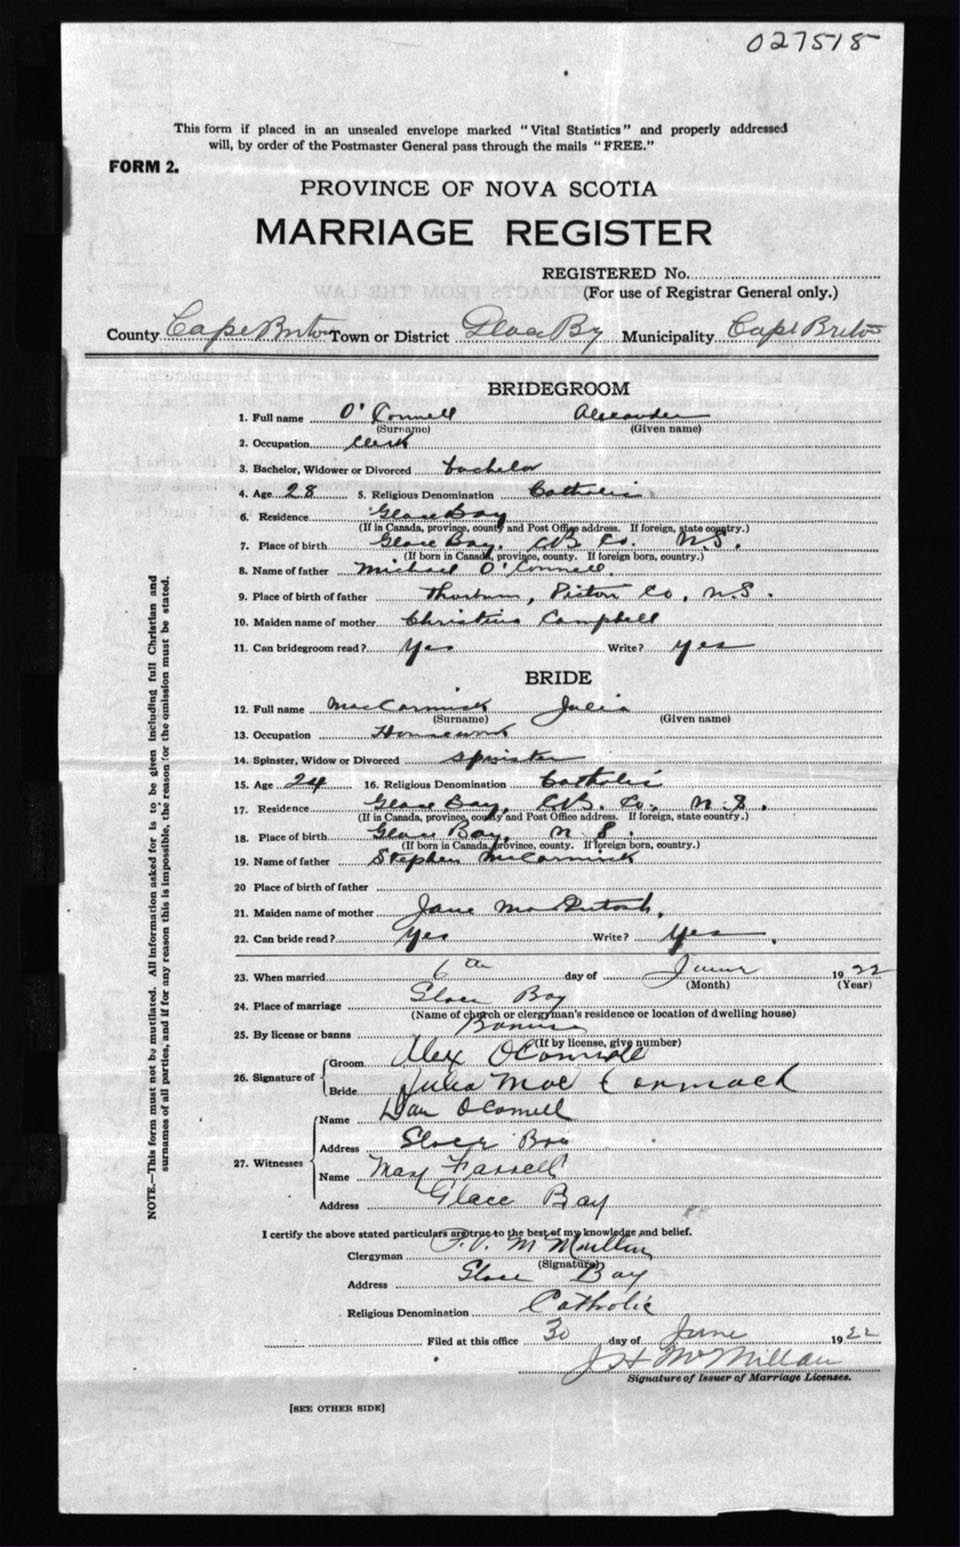 027518
This form if placed in an unsealed envelope marked "Vital Statistics" and properly addressed
will, by order of the Postmaster General pass through the mails "FREE."
FORM 2.
PROVINCE OF NOVA SCOTIA
MARRIAGE REGISTER
REGISTERED No.
(For use of Registrar General only.)
County Cape Breton Town or District Glace Bay Municipality Cape Breton
BRIDEGROOM
1. Full name O'Connell Alexander
(Surname) (Given name)
2. Occupation Clerk
3. Bachelor, Widower or Divorced bachelor
4. Age 28 5. Religious Denomination Catholic
6. Residence Glace Bay
(If in Canada, province, county and Post Office address. If foreign, state country.)
7. Place of birth Glace Bay, CB Co. N.S.
(If born in Canada, province, county. If foreign born, country.)
8. Name of father Michael O'Connell.
9. Place of birth of father Thorburn, Pictou Co, N.S.
10. Maiden name of mother Christina Campbell
11. Can bridegroom read? Yes Write? yes
BRIDE
12. Full name MacCormick Julia
(Surname) (Given name)
13. Occupation Housework
14. Spinster, Widow or Divorced spinster
15. Age 24 16. Religious Denomination Catholic
17. Residence Glace Bay, C.B. Co., N.S.
(If in Canada, province, county and Post Office address. If foreign, state country.)
18. Place of birth Glace Bay, N S.
(If born in Canada, province, county. If foreign born, country.)
19. Name of father Stephen McCormick
20 Place of birth of father
21. Maiden name of mother Jane MacIntosh,
22. Can bride read? Yes Write? Yes
23. When married 6th day of June 1922
(Month) (Year)
24. Place of marriage Glace Bay
(Name of church or clergyman's residence or location of dwelling house)
25. By license or banns Banns
(If by license, give number)
26. Signature of
Groom Alex OConnell
Bride Julia Mac Cormack
27. Witnesses
Name Dan OConnell
Address Glace Bay
Name May Farrell
Address Glace Bay
I certify the above stated particulars are true to the best of my knowledge and belief.
Clergyman
(Signature)
Address Glace Bay
Religious Denomination Catholic
Filed at this office 30 day of June 1922
J H McMillan
Signature of Issuer of Marriage Licenses.
[SEE OTHER SIDE]
NOTE.—This form must not be mutilated. All information asked for is to be given including full Christian and
surnames of all parties, and if for any reason this is impossible, the reason for the omission must be stated.